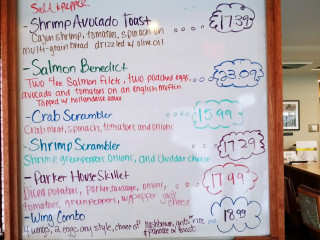 Salt & pepper
-Shrimp Avocado Toast
Cajun shrimp, tomatoes, spinach on
multi-grain bread drizzled w/ olive oil
17.39
-Salmon Benedict
Two 4oz Salmon filets, two poached eggs,
avocado and tomatoes on an english muffin
Topped w/ Hollandaise sauce
23.09
-Crab Scrambler
Crab meat, spinach, tomatoes and onions
15.99
-Shrimp Scrambler
Shrimp, green peppers, onions, and cheddar cheese
17.29
-Parker House Skillet
Diced potatoes, parker sausage, onions,
tomatoes, green peppers, w/ pepper jack
cheese
17.99
-Wing Combo
4 wings, 2 eggs any style, choice of hashbrowns, grits, rice
+ pancake or toast
18.99